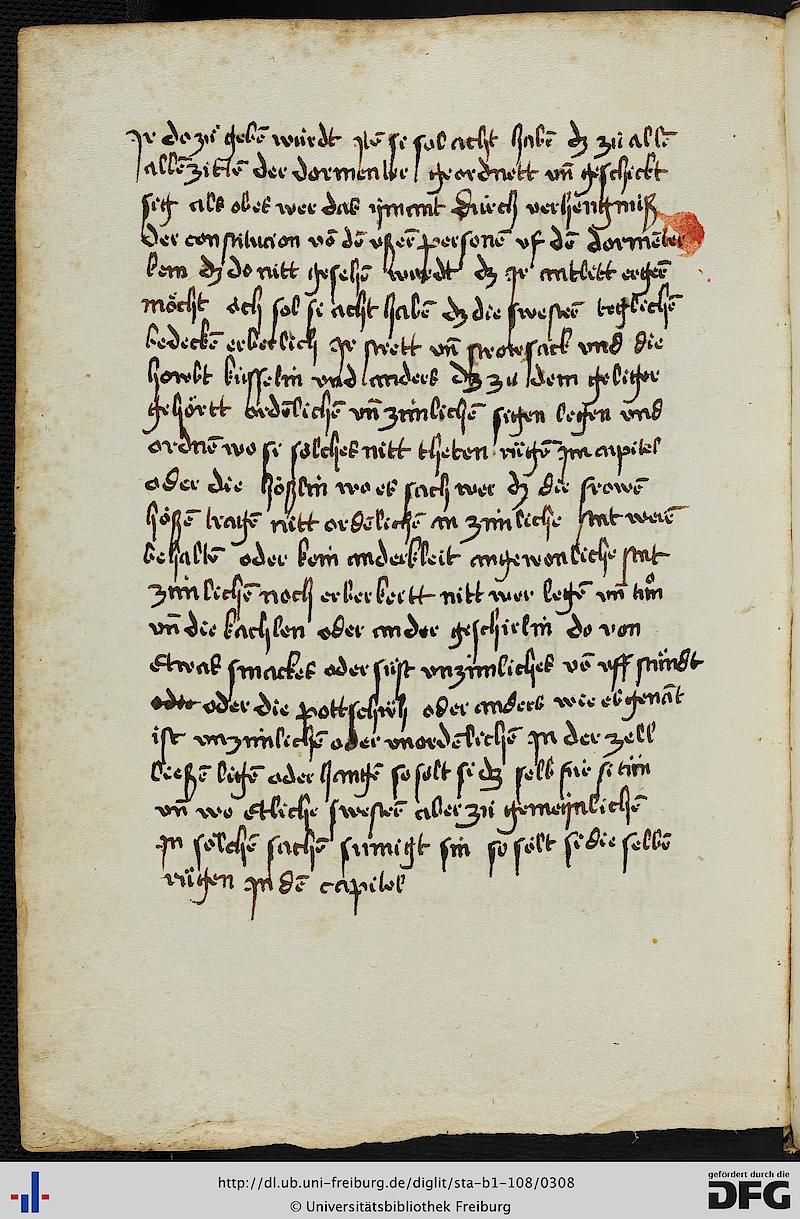 Jr do zů gebē würdt Jtē si sol acht habē dz zů allē
allē zittē der dormenter geordnett vn̄ geschickt
sig als ob es wer das ÿmant durch verhengniß
Der constitucion vō dē vsserē personē vf dē dormēter
kem dz do nitt gesehē wurdt dz Jr antlitt ergerē
möcht och sol si acht habē dz die swesterē teglichē
bedeckē erberlich Jr bett vn̄ strowsack vnd die
howbt küsselin vnd anders dz zu dem geliger
gehörtt ordēlichē vn̄ zimlichē sigen legen vnd
ordnē wo si solches nitt theten rügē Jm capitel
oder die hößlin wo es sach wer dz die frowē
hößē tragē nitt ordēlichē an zimliche stat werē
behaltē oder kein anderkleit angewonliche stat
zimlichē noch erberkertt nitt wer legē vn̄ tůn
vn̄ die kachlen oder ander geschirlin do von
Etwas smackes oder süst vnzimliches vō vff stündt
oder oder die pottschüh oder anders wie es genāt
ist vnzimlichē oder vnordēlichē Jn der zell
liessē ligē oder hangē so solt si dz selb für si tůn
vn̄ wo etliche swesterē aber zů gemeÿnlichē
Jn solchē sachē sumigt sin so sölt si die selbē
rügen Jn dē capitel
http://dl.ub.uni-freiburg.de/diglit/sta-b1-108/0308
© Universitätsbibliothek Freiburg
gefördert durch die
DFG